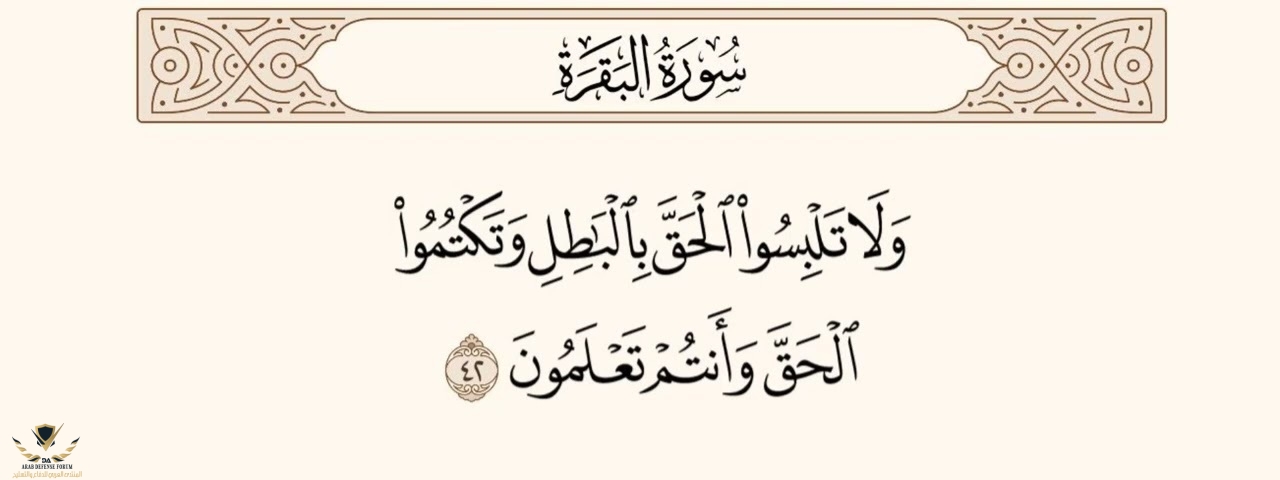 سُورَةُ البَقَرَةِ
وَلَا تَلۡبِسُواْ ٱلۡحَقَّ بِٱلۡبَٰطِلِ وَتَكۡتُمُواْ
ٱلۡحَقَّ وَأَنتُمۡ تَعۡلَمُونَ ٤٢
DA
ARAB DEFENSE FORUM
المنتدى العربي للدفاع والتسليح